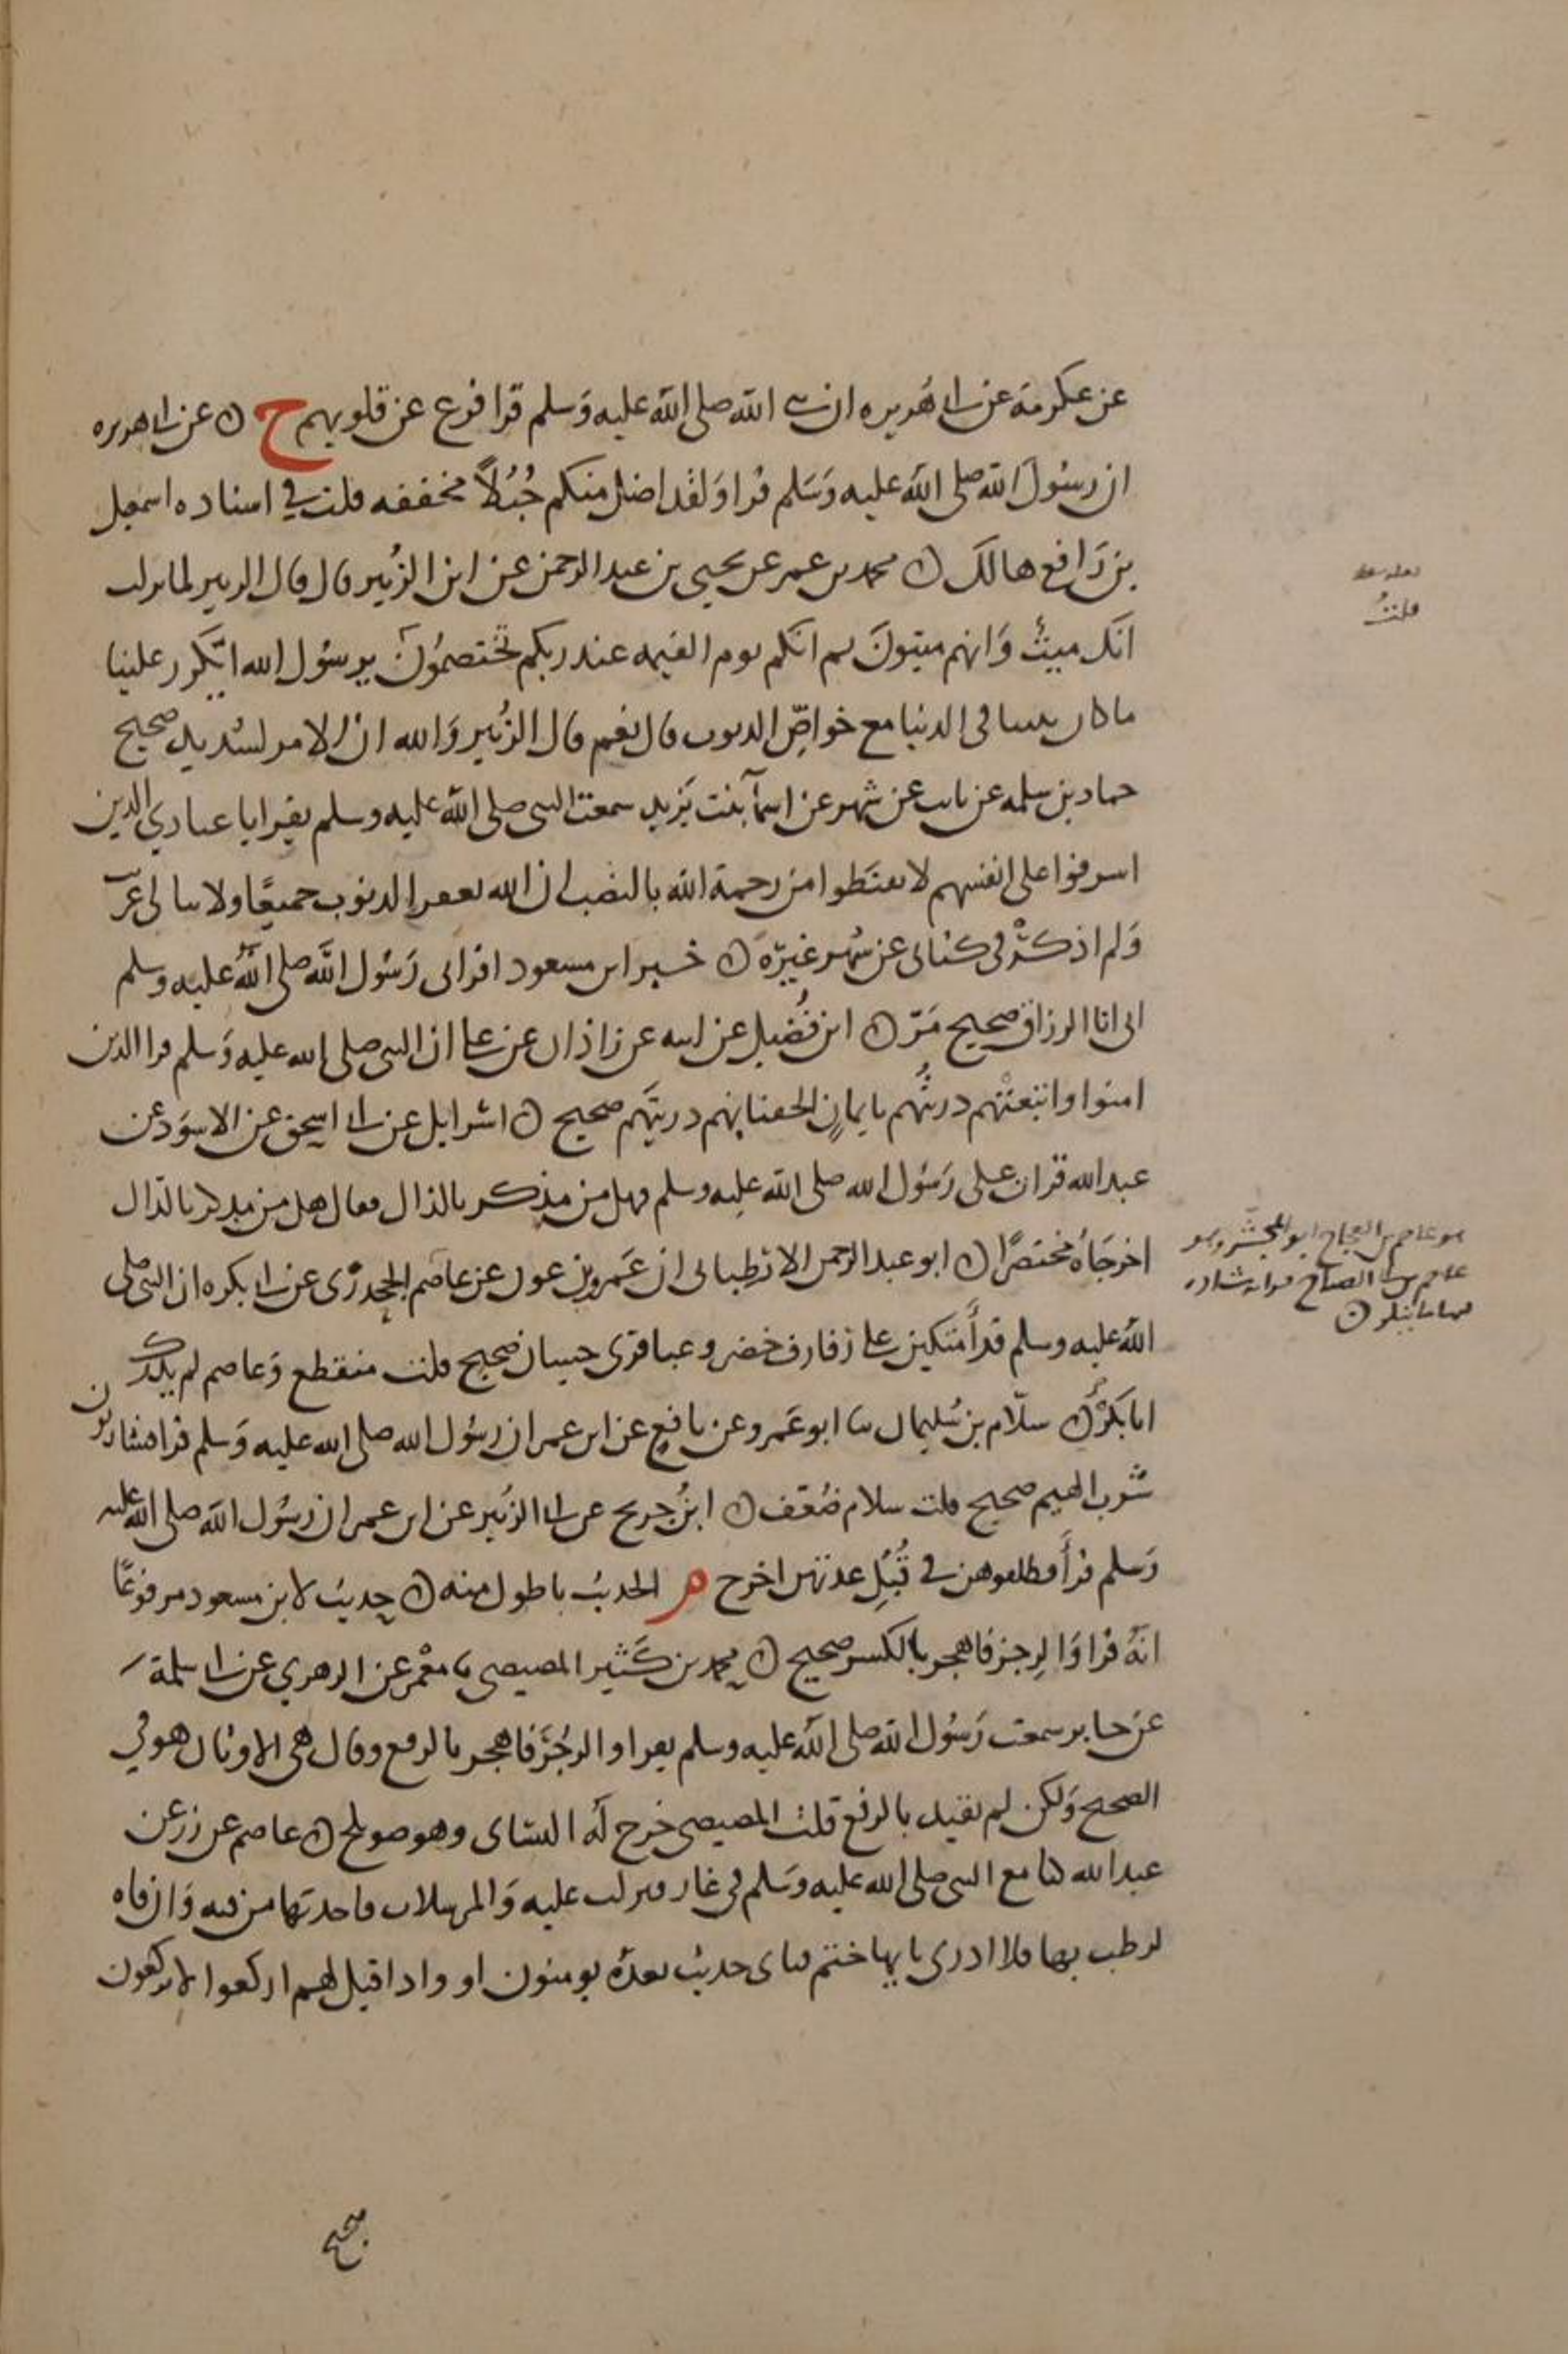 عن عكرمة عن ابى هريره ان نبى الله صلى الله عليه وسلم قرا فزع عن قلوبهم ح ن عن ابى هريره
ان رسول الله صلى الله عليه وسلم قرا ولقد اضل منكم جبلا مخففه قلت فى اسناده اسمعيل
بن رافع هالك ن محمد بن عمر عن يحيى بن عبد الرحمن عن ابن الزبير قال قال الزبير لما نزلت
انك ميت وانهم ميتون ثم انكم يوم القيمه عند ربكم تختصمون يرسول الله ايكرر علينا
ما كان بيننا فى الدنيا مع خواص الذنوب قال نعم قال الزبير والله ان الامر لشديد صحيح
حماد بن سلمه عن ثابت عن شهر عن اسما بنت يزيد سمعت النبى صلى الله عليه وسلم يقرا يا عبادي الذين
اسرفوا على انفسهم لا تقنطوا من رحمة الله بالنصب ان الله يغفر الذنوب جميعا ولا يبالى غريب
ولم اذكر فى كتابى عن شهر غيره ن خبر ابن مسعود اقرانى رسول الله صلى الله عليه وسلم
انى انا الرزاق صحيح مر ن ابن فضيل عن ابيه عن زاذان عن على ان النبى صلى الله عليه وسلم قرا الذين
امنوا واتبعتهم ذريتهم بايمان الحقنا بهم ذريتهم صحيح ن اسرايل عن ابى اسحق عن الاسود عن
عبد الله قرات على رسول الله صلى الله عليه وسلم فهل من مذكر بالذال فقال هل من مدكر بالدال
اخرجاه مختصرا ن ابو عبد الرحمن الارطبانى ان عمرو بن عون عن عاصم الجحدرى عن ابى بكره ان النبى صلى
الله عليه وسلم قرا متكين على رفارف خضر وعباقرى حسان صحيح قلت منقطع وعاصم لم يدرك
ابا بكره ن سلام بن سليمان نا ابو عمرو عن نافع عن ابن عمر ان رسول الله صلى الله عليه وسلم قرا فشاربون
شرب الهيم صحيح قلت سلام ضعف ن ابن جريح عن ابى الزبير عن ابن عمر ان رسول الله صلى الله عليه
وسلم قرا فطلقوهن فى قبل عدتهن اخرج م الحديث باطول منه ن حديث لابن مسعود مرفوعا
انه قرا والرجز فاهجر بالكسر صحيح ن محمد بن كثير المصيصى نا معمر عن الزهري عن ابى سلمة
عن جابر سمعت رسول الله صلى الله عليه وسلم يقرا والرجز فاهجر بالرفع وقال هى الاوثان هو في
الصحيح ولكن لم يقيد بالرفع قلت المصيصى خرج له النساى وهو صويلح ن عاصم عن زر عن
عبد الله كنا مع النبى صلى الله عليه وسلم فى غار فنزلت عليه والمرسلات فاخذتها من فيه وان فاه
لرطب بها فلا ادرى بايها ختم فباى حديث بعده يومنون او واذا قيل لهم اركعوا لا يركعون
قلت
هو عاصم بن العجاج ابو المجشر وهو
عاصم بن ابى الصباح قراته شاذه
صحيح